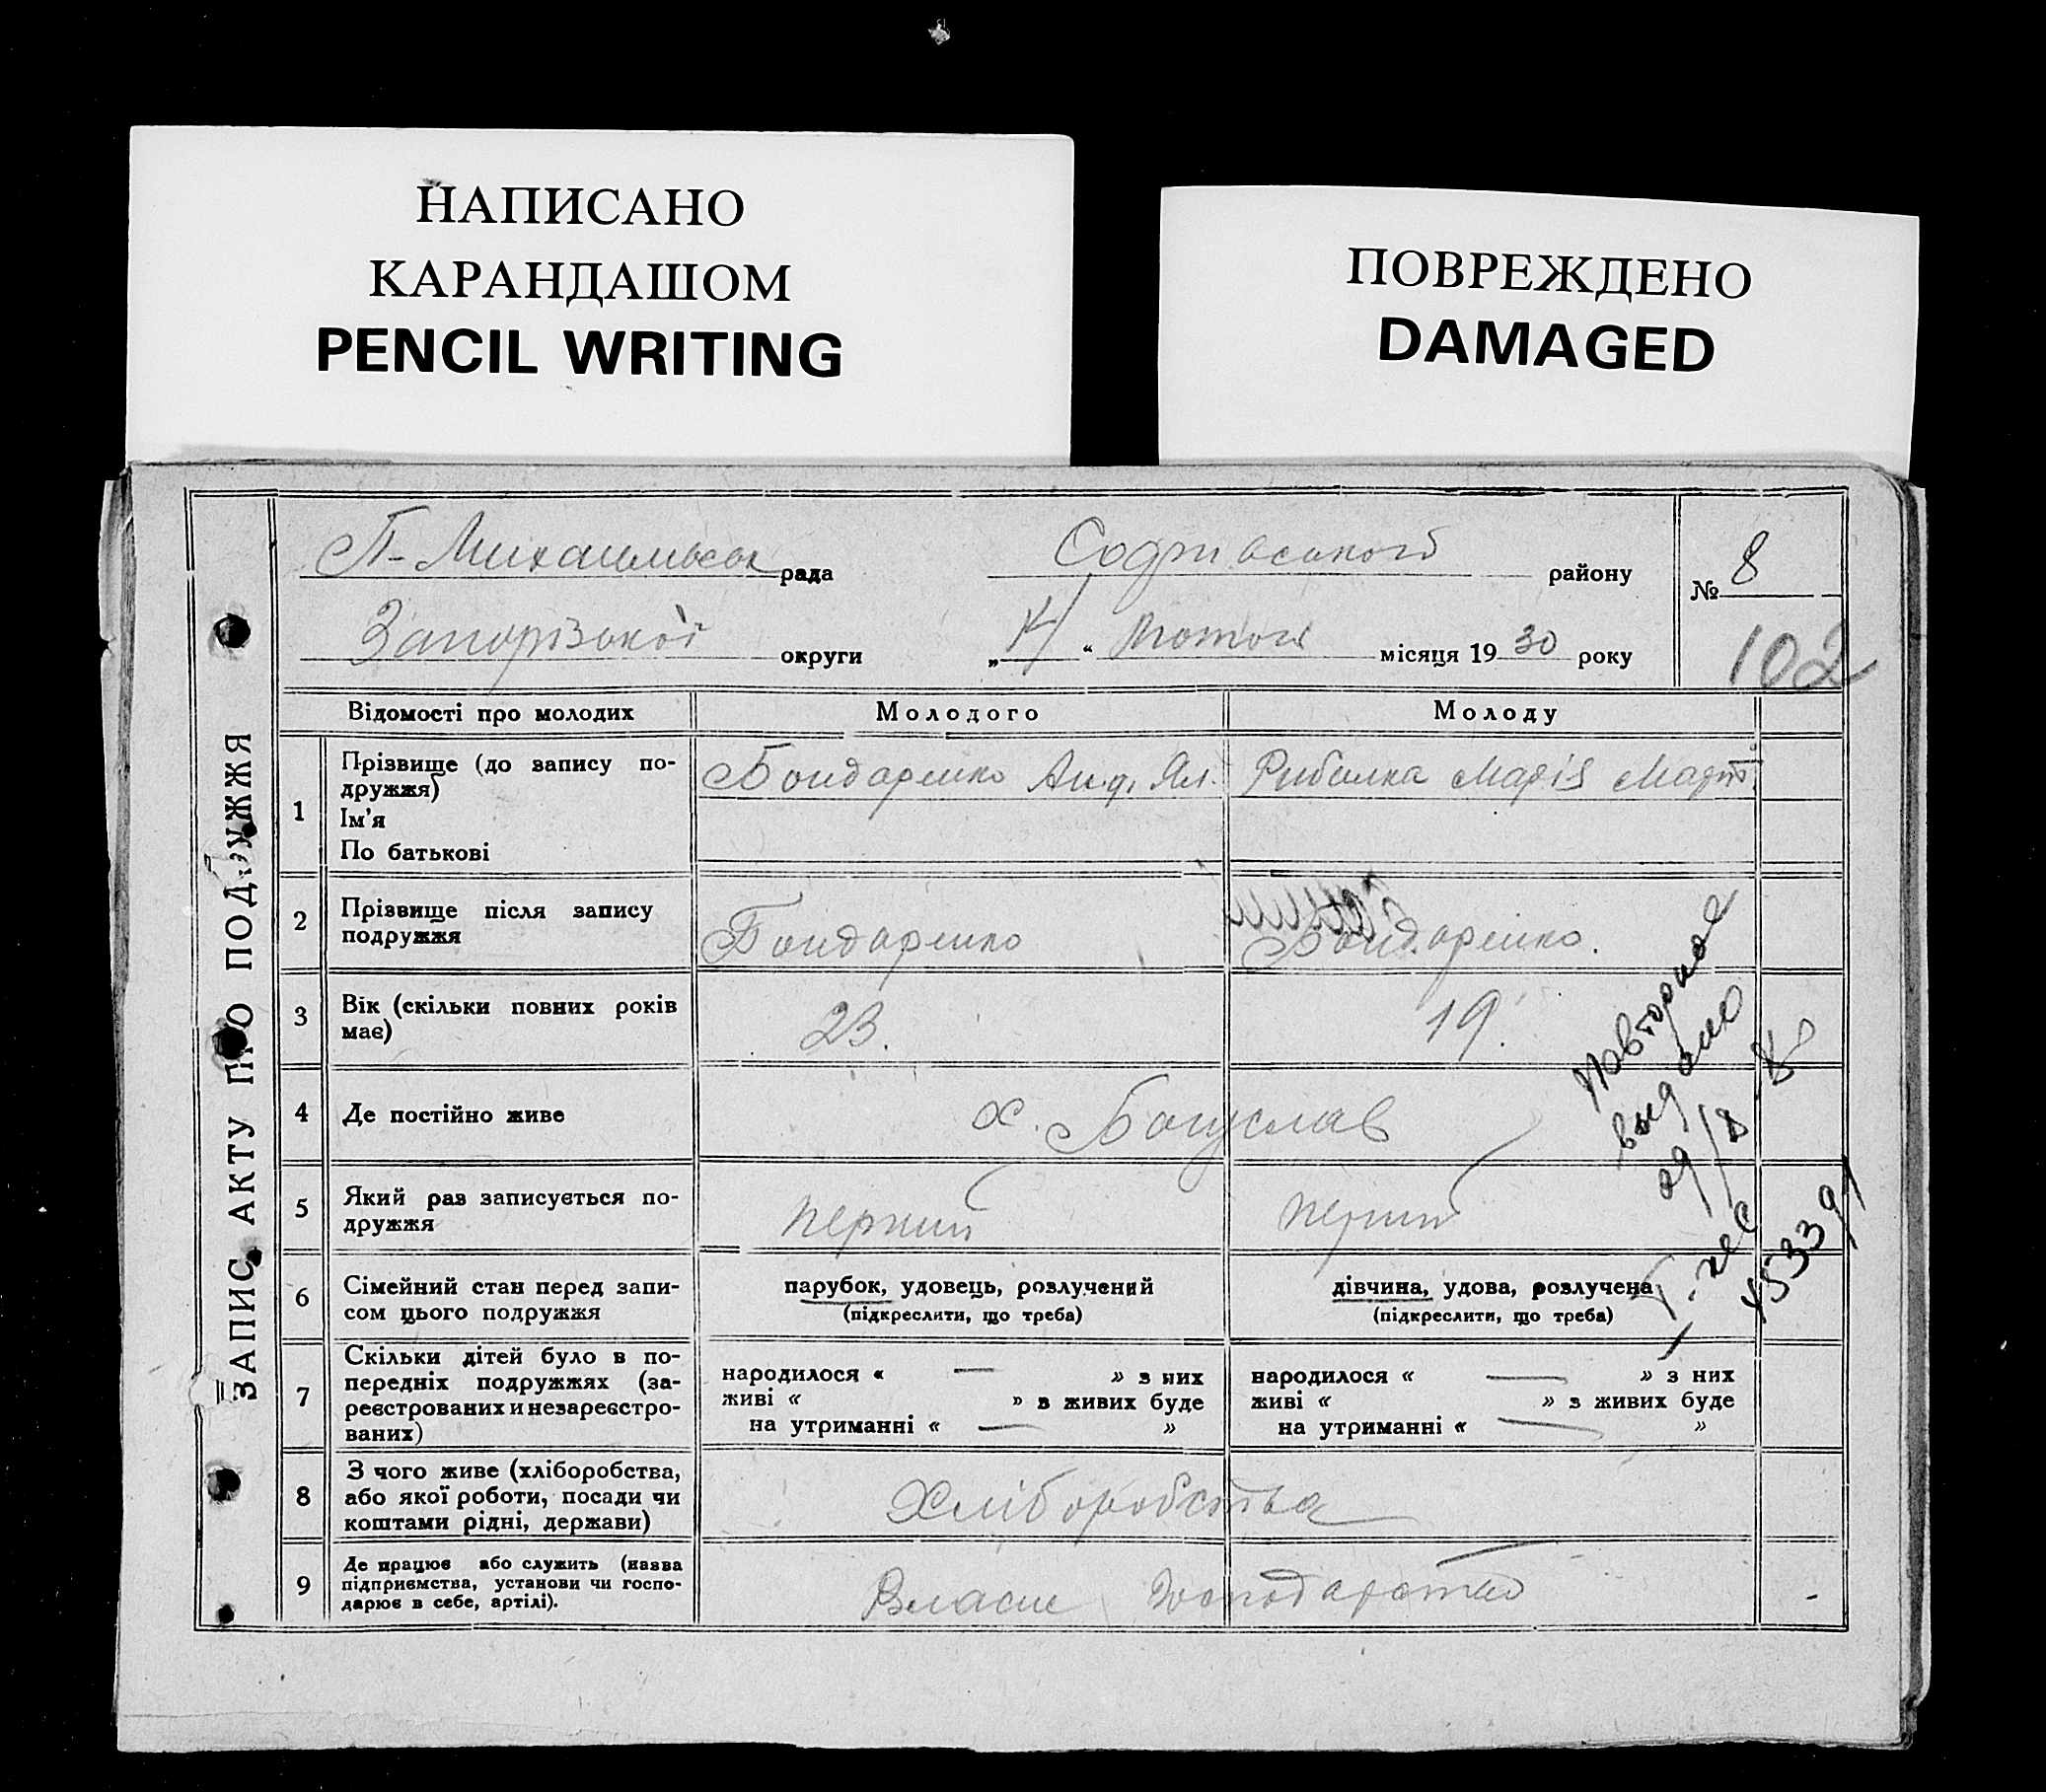 НАПИСАНО
КАРАНДАШОМ
PENCIL WRITING
ПОВРЕЖДЕНО
DAMAGED
ЗАПИС АКТУ ПРО ПОДРУЖЖЯ
П-Михаильськ рада району
№ 8
Запорізької округи „ “ лютого місяця 1930 року
102
Відомості про молодих Молодого Молоду
1 Прізвище (до запису по-
дружжя)
Ім'я
По батькові
Бондаренко Анд. Рибалка Марія
2 Прізвище після запису
подружжя
Бондаренко Бондаренко.
3 Вік (скільки повних років
має)
23. 19.
4 Де постійно живе
х. Богуслав
5 Який раз записується по-
дружжя
перший перший
6 Сімейний стан перед запи-
сом цього подружжя
парубок, удовець, розлучений
(підкреслити, що треба)
дівчина, удова, розлучена
(підкреслити, що треба)
7 Скільки дітей було в по-
передніх подружжях (за-
реєстрованих и незареєстро-
ваних)
народилося « — » з них
живі « » з живих буде
на утриманні « — »
народилося « — » з них
живі « » з живих буде
на утриманні « — »
8 З чого живе (хліборобства,
або якої роботи, посади чи
коштами рідні, держави)
Хліборобства
9 Де працює або служить (назва
підприємства, установи чи госпо-
дарює в себе, артілі).
Власне господарство
Повторное
выдано